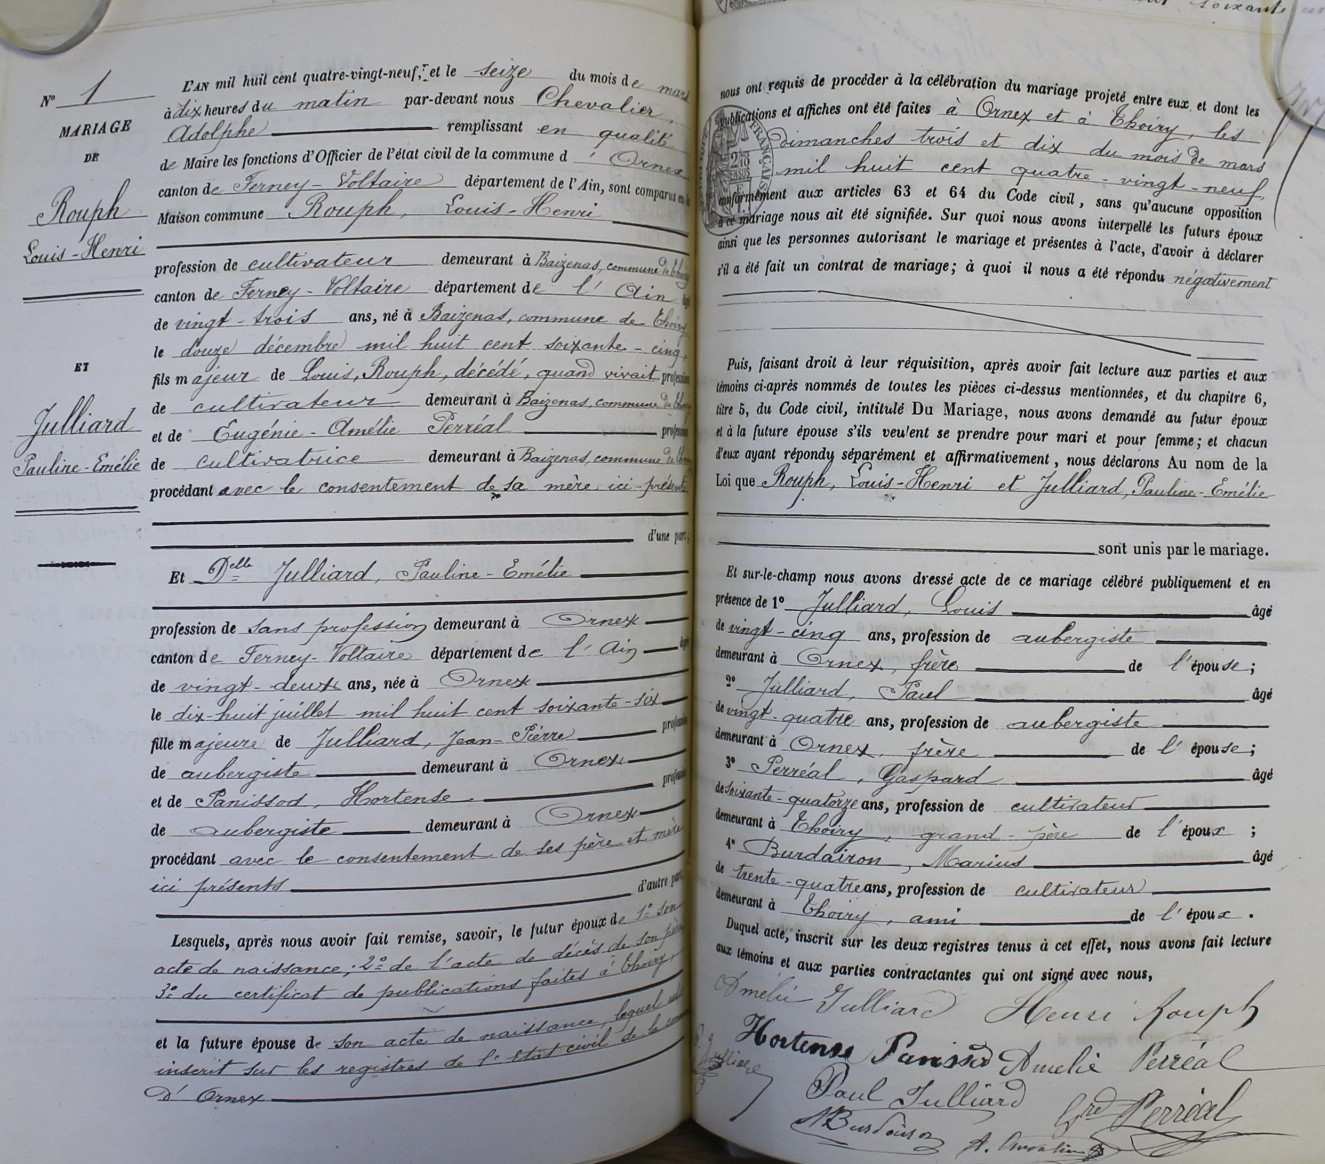 soixante
N° 1
MARIAGE
DE
Rouph
Louis-Henri
ET
Julliard
Pauline-Emélie
L'AN mil huit cent quatre-vingt-neuf, et le seize du mois de mars
à dix heures du matin par-devant nous Chevalier,
Adolphe remplissant en qualité
de Maire les fonctions d'Officier de l'état civil de la commune d' Ornex
canton de Ferney-Voltaire département de l'Ain, sont comparus en la
Maison commune Rouph, Louis-Henri
profession de cultivateur demeurant à Baizenas, commune de Thoiry
canton de Ferney-Voltaire département de l'Ain âgé
de vingt-trois ans, né à Baizenas, commune de Thoiry
le douze décembre mil huit cent soixante-cinq,
fils majeur de Louis, Rouph, décédé, quand vivait profession
de cultivateur demeurant à Baizenas, commune de Thoiry
et de Eugénie-Amélie Perréal profession
de cultivatrice demeurant à Baizenas, commune de Thoiry
procédant avec le consentement de sa mère, ici présente
d'une part,
Et Delle Julliard, Pauline-Emélie
profession de sans profession demeurant à Ornex
canton de Ferney-Voltaire département de l'Ain âgée
de vingt-deux ans, née à Ornex
le dix-huit juillet mil huit cent soixante-six
fille majeure de Julliard, Jean-Pierre profession
de aubergiste demeurant à Ornex
et de Panissod, Hortense profession
de aubergiste demeurant à Ornex
procédant avec le consentement de ses père et mère
ici présents d'autre part,
Lesquels, après nous avoir fait remise, savoir, le futur époux de 1° son
acte de naissance; 2° de l'acte de décès de son père
3° du certificat de publications faites à Thoiry,
et la future épouse de son acte de naissance, lequel est
inscrit sur les registres de l'Etat civil de la commune
D'Ornex
nous ont requis de procéder à la célébration du mariage projeté entre eux et dont les
publications et affiches ont été faites à Ornex et à Thoiry, les
dimanches trois et dix du mois de mars
mil huit cent quatre-vingt-neuf
conformément aux articles 63 et 64 du Code civil, sans qu'aucune opposition
à ce mariage nous ait été signifiée. Sur quoi nous avons interpellé les futurs époux
ainsi que les personnes autorisant le mariage et présentes à l'acte, d'avoir à déclarer
s'il a été fait un contrat de mariage; à quoi il nous a été répondu négativement
Puis, faisant droit à leur réquisition, après avoir fait lecture aux parties et aux
témoins ci-après nommés de toutes les pièces ci-dessus mentionnées, et du chapitre 6,
titre 5, du Code civil, intitulé Du Mariage, nous avons demandé au futur époux
et à la future épouse s'ils veulent se prendre pour mari et pour femme; et chacun
d'eux ayant répondu séparément et affirmativement, nous déclarons Au nom de la
Loi que Rouph, Louis-Henri et Julliard, Pauline-Emélie
sont unis par le mariage.
Et sur-le-champ nous avons dressé acte de ce mariage célébré publiquement et en
présence de 1° Julliard, Louis âgé
de vingt-cinq ans, profession de aubergiste
demeurant à Ornex, frère de l'épouse;
2° Julliard, Paul âgé
de vingt-quatre ans, profession de aubergiste
demeurant à Ornex, frère de l'épouse;
3° Perréal, Gaspard âgé
de soixante-quatorze ans, profession de cultivateur
demeurant à Thoiry, grand-père de l'époux;
4° Burdairon, Marius âgé
de trente-quatre ans, profession de cultivateur
demeurant à Thoiry, ami de l'époux.
Duquel acte, inscrit sur les deux registres tenus à cet effet, nous avons fait lecture
aux témoins et aux parties contractantes qui ont signé avec nous,
Amélie Julliard Henri Rouph
Hortense Panissod Amelie Perréal
Paul Julliard Grd Perréal